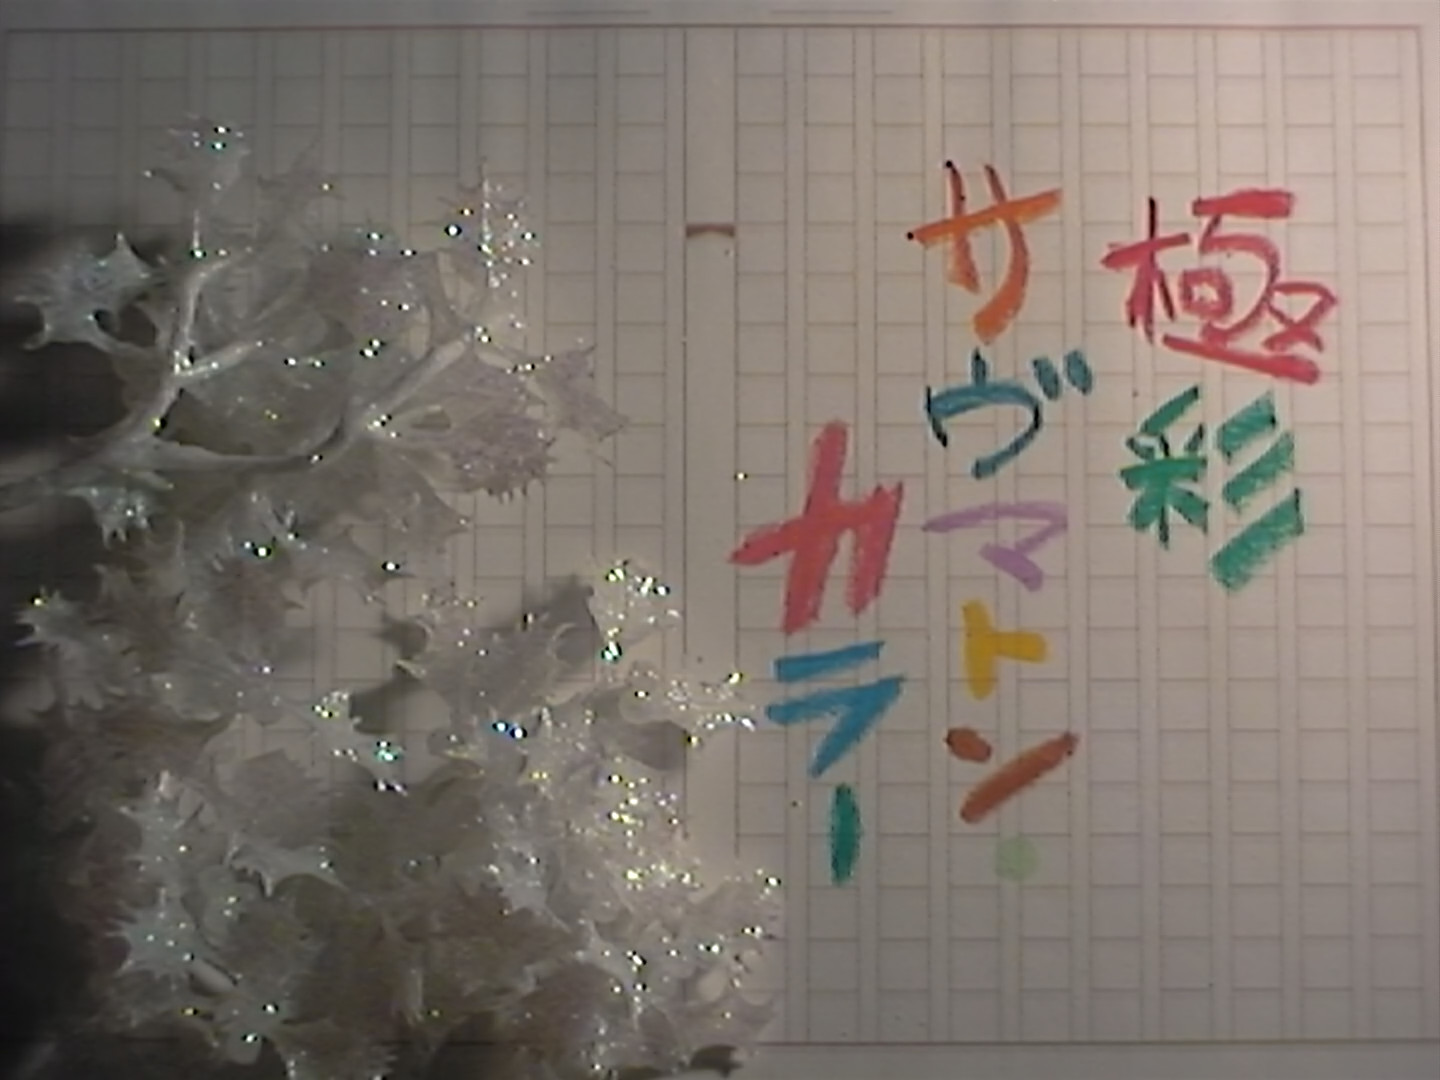 極彩
サヴマトン・
カラー